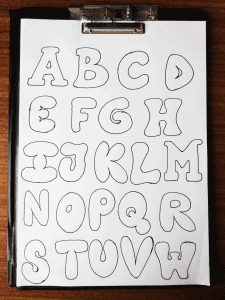 ABCD
EFGH
IJKLM
NOPQR
STUVW